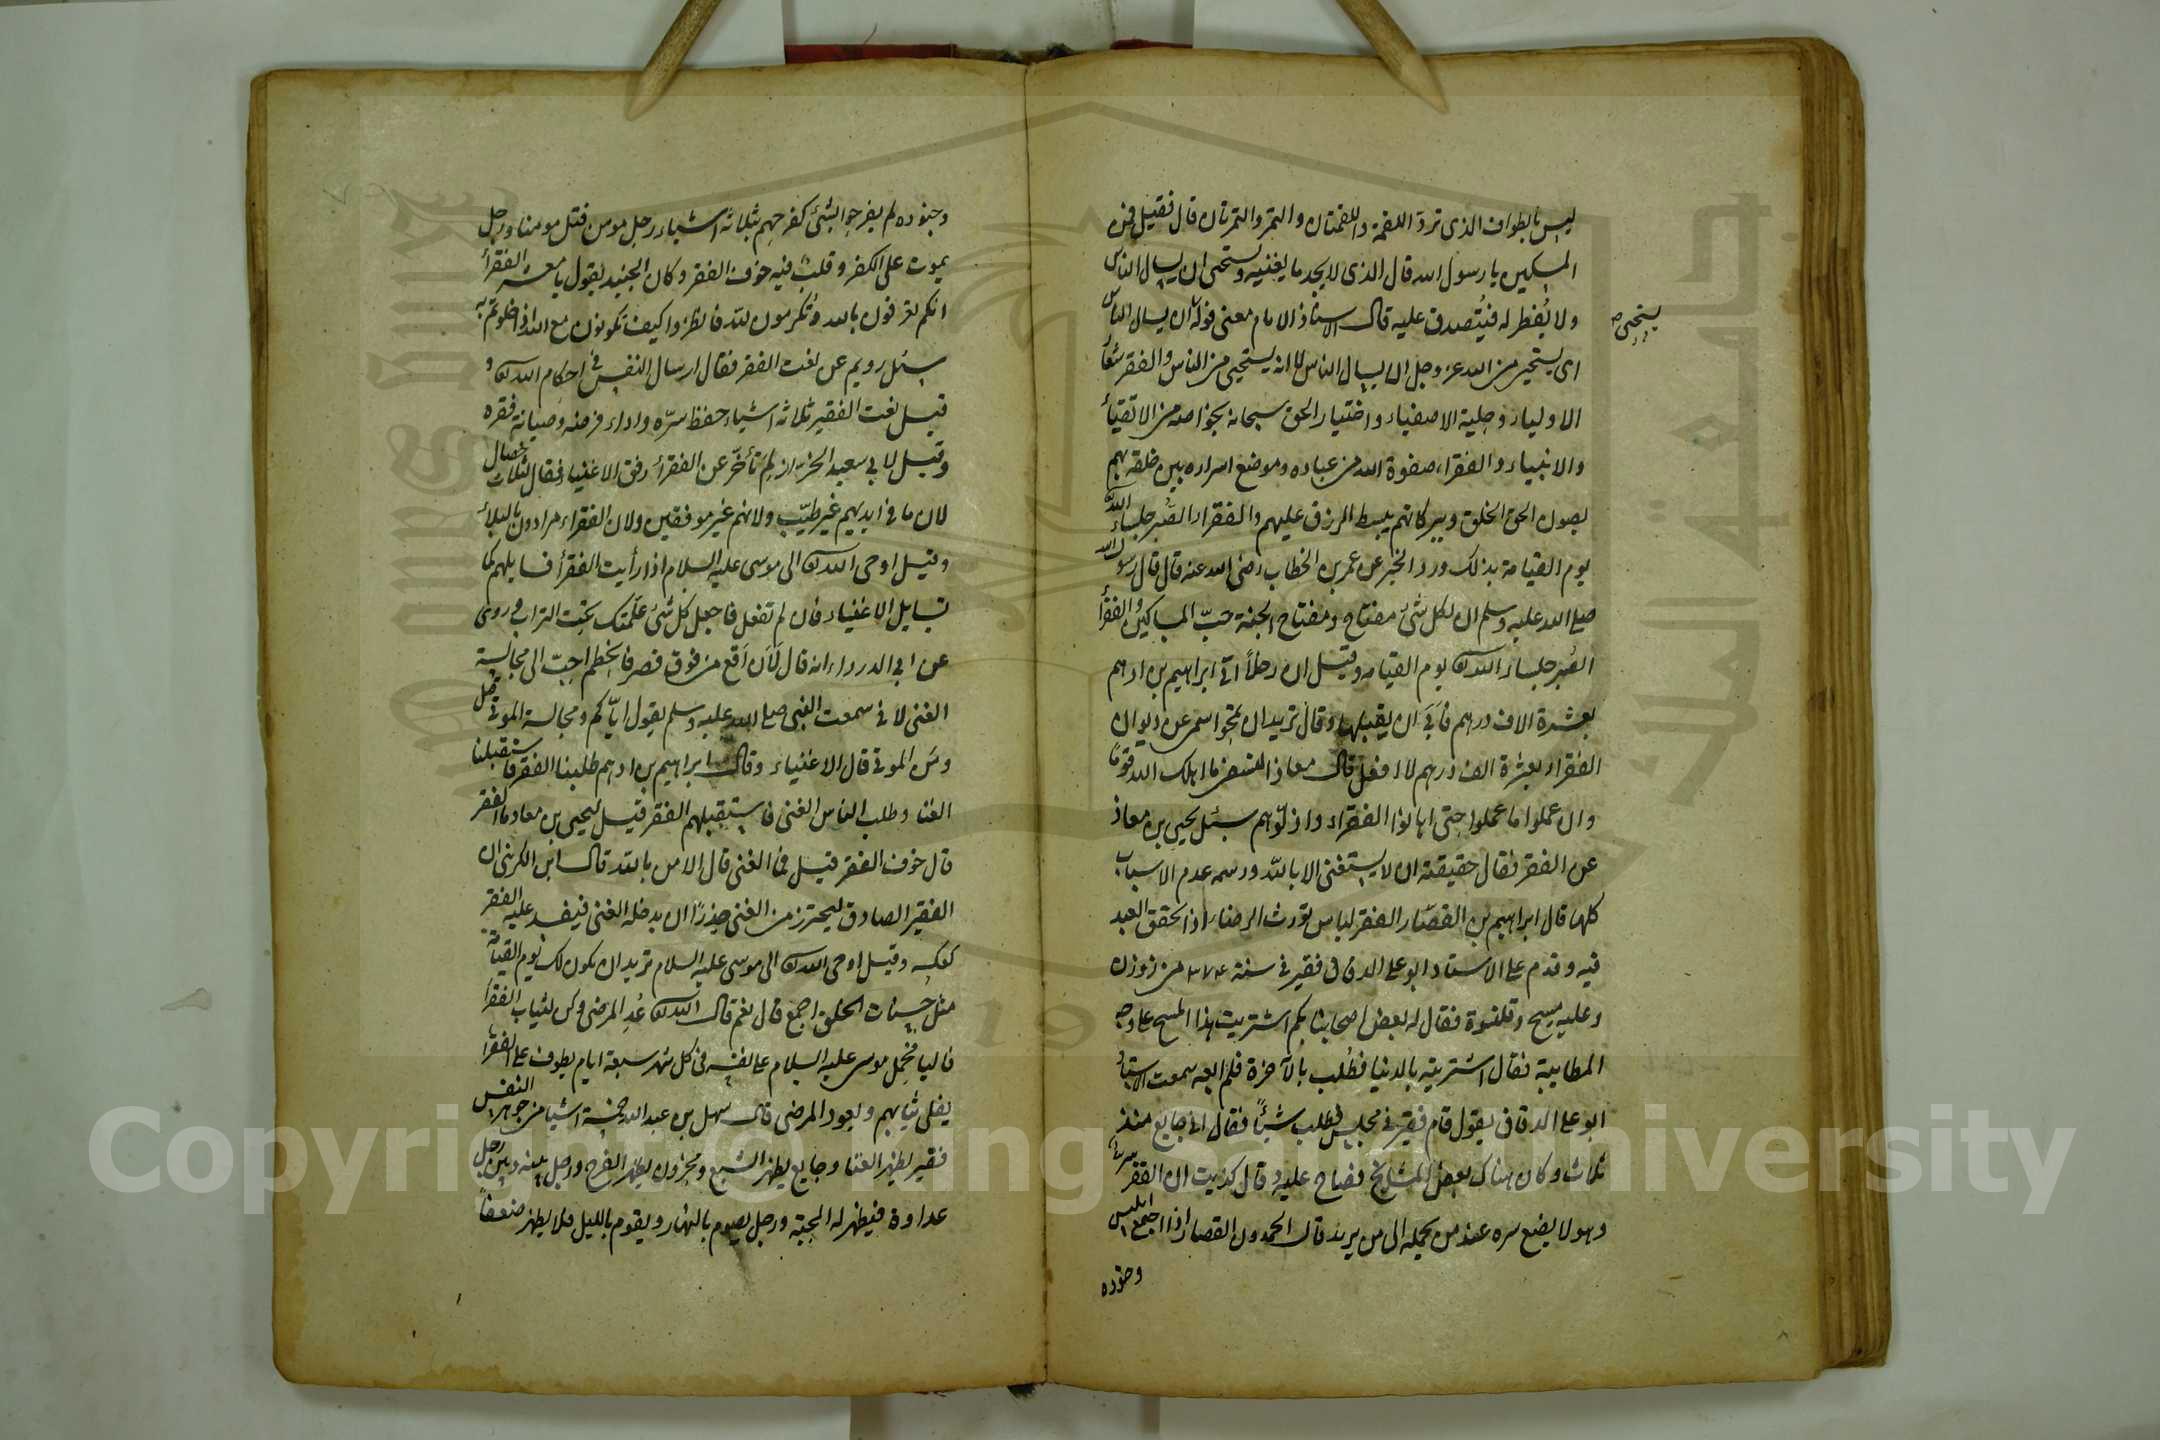 ليس بالطواف الذى تردّ اللقمة واللقمتان والتمر والتمرتان قال فقيل فمن
المسكين يا رسول الله قال الذى لا يجد ما يغنيه ويستحى ان يسال الناس
ولا يُفطر له فيُتصدق عليه قال الاستاذ الامام معنى قوله ان يسال الناس
يستحى صح
اى يستحيى من الله عز وجل ان يسال الناس لا انه يستحيى من الناس والفقر شعار
الاولياء وحلية الاصفياء واختيار الحق سبحانه بخواصه من الاتقيأ
والانبياء والفقراء صفوة الله من عباده وموضع اسراره بين خلقه بهم
يصون الحق الخلق وببركاتهم يبسط الرزق عليهم والفقراء الصُبر جلساء الله
يوم القيامة بذلك ورد الخبر عن عمر بن الخطاب رضى الله عنه قال قال رسول الله
صلى الله عليه وسلم ان لكل شئ مفتاح ومفتاح الجنة حبّ المساكين والفقرأ
الصُبر جلساء الله يوم القيامه وقيل ان رجلاً اتى ابراهيم بن ادهم
بعشرة الاف درهم فابى ان يقبلها وقال تريد ان تمحوا اسمى عن ديوان
الفقراء بعشرة الف درهم لا افعل قال معاذ النسفى ما اهلك الله قومًا
وان عملوا ما عملوا حتى اهانوا الفقراء واذلّوهم سئل يحيى بن معاذ
عن الفقر فقال حقيقته ان لا يستغنى الا بالله ورسمه عدم الاسباب
كلها قال ابراهيم بن القصّار الفقر لباس تورث الرضاء اذا تحقق العبد
فيه وقدم على الاستاد ابو على الدقاق فقير فى سنة ٣٧٤ من زوزن
وعليه مسح وقلنسوة فقال له بعض اصحابنا بكم اشتريت هذا المسح على وجه
المطايبة فقال اشتريته بالدنيا فطُلب بالآخرة فلم ابعه سمعت الاستاذ
ابو على الدقاق يقول قام فقير فى مجلس فطلب شيئًا فقال انى جايع منذ
ثلاث وكان هناك بعض المشايخ فصاح عليه وقال كذبت ان الفقر سر الله
وهو لا يضع سره عند من يحمله الى من يريد قال الحمدون القصار اذا اجتمع ابليس
وجنوده
وجنوده لم يفرحوا بشئ كفرحهم بثلاثة اشياء رجل مومن قتل مومنا ورجل
يموت على الكفر وقلب فيه خوف الفقر وكان الجنيد يقول يا معشر الفقرأ
انكم تعرفون بالله وتُكرمون لله فانظروا كيف تكونون مع الله اذا خلوتم به
سئل رويم عن نعت الفقر فقال ارسال النفس فى احكام الله و
قيل نعت الفقير ثلاثه اشياء حفظ سرّه واداء فرضه وصيانة فقره
وقيل لابى سعيد الخراز لِم تأخّر عن الفقرأ رفق الاغنياء فقال لثلاث خصال
لان ما فى ايديهم غير طيّب ولانهم غير موفقين ولان الفقراء مرادون بالبلاء
وقيل اوحى الله الى موسى عليه السلام اذا رأيت الفقرأ فسايلهم كما
تسايل الاغنياء فان لم تفعل فاجعل كل شئ علّمتك تحت التراب وروى
عن ابى الدرداء انه قال لَأن اقع من فوق قصر فانحطم احبّ الى مجالسة
الغنى لانى سمعت النبى صلى الله عليه وسلم يقول ايّاكم ومجالسة الموتى قيل
ومَن الموتى قال الاغنياء وقال ابراهيم بن ادهم طلبنا الفقر فاستقبلنا
الغنا وطلب الناس الغنى فاستقبلهم الفقر قيل ليحيى بن معاد ما الفقر
قال خوف الفقر قيل فما الغنى قال الامن بالله قال ابن الكرينى ان
الفقير الصادق ليحترز من الغنى حذرًا ان يدخله الغنى فيفسد عليه الفقر
كعكسه وقيل اوحى الله الى موسى عليه السلام تريد ان تكون لك يوم القيامة
مثل حسنات الخلق اجمع قال نعم قال الله عُد المرضى وكن لثياب الفقرأ
فاليا فجعل موسى عليه السلام على نفسه فى كل شهر سبعة ايام يطوف على الفقرأ
يفلى ثيابهم ويعود المرضى قال سهل بن عبد الله خمسة اشيا من جوهر النفس
فقير يظهر الغنا وجايع يظهر الشبع ومحزون يظهر الفرح ورجل بينه وبين رجل
عداوة فيظهر له المحبّة ورجل يصوم بالنهار ويقوم بالليل فلا يظهر ضعفًا
Copyright © King Saud University
جامعة الملك سعود
1957